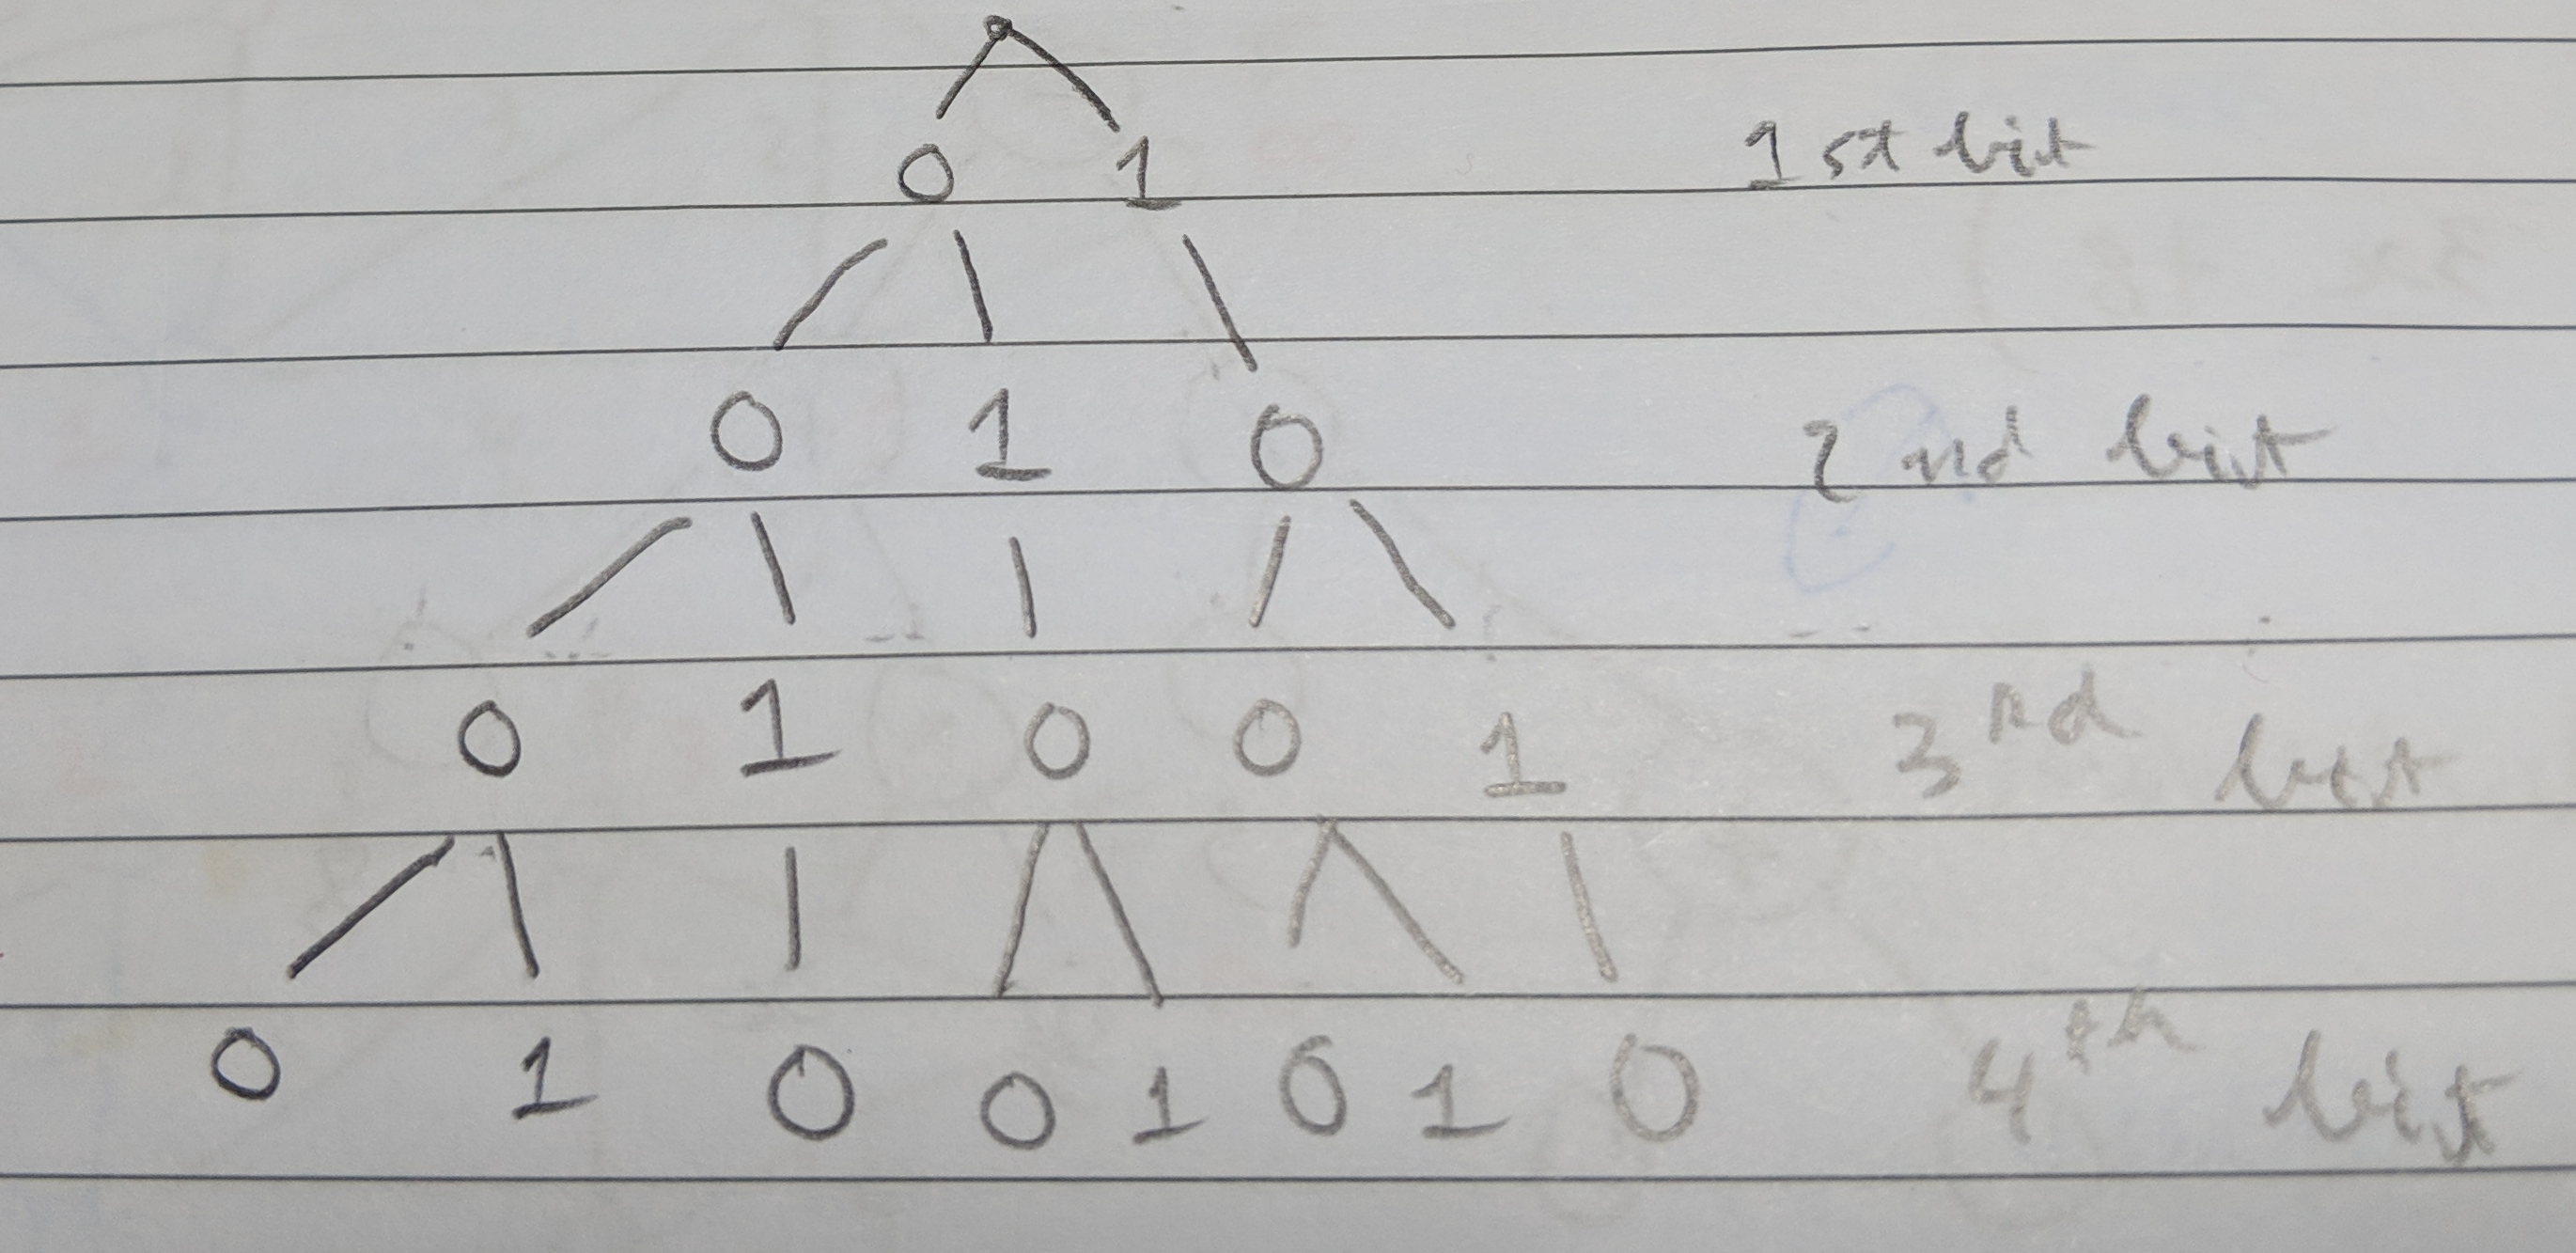 0 1 1st bit
0 1 0 2nd bit
0 1 0 0 1 3rd bit
0 1 0 0 1 0 1 0 4th bit